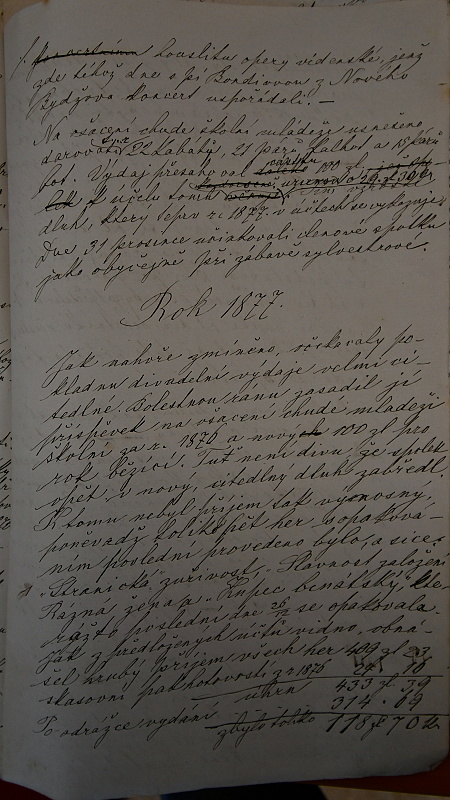 houslista opery vídenské, jenž
zde téhož dne s pí Bondivovou z Nového
Bydžova koncert uspořádali. —
Na ošacení chudé školní mládeže usneseno
darovati 22 kabáty, 21 párů kalhot a 15 párů
bot. Výdaj přesahoval částku 100 zl
k účelu tomu
dluh, který teprv r. 1877 v účtech se vykazuje.
Dne 31 prosince účinkovali členové spolku
jako obyčejně při zábavě sylvestrové.
Rok 1877.
Jak nahoře zmíněno, stíkaly po-
kladnu divadelní výdaje velmi ci-
telné. Bolestnou ránu zasadil jí
příspěvek na ošacení chudé mládeži
školní za r. 1876 a nových 100 zl pro
rok běžící. Tuť není divu, že spolek
opět v nový, citedlný dluh zabředl.
K tomu nebyl příjem tak výnosný,
poněvadž tolikopět her s opaková-
ním poslední provedeno bylo, a sice:
"Stranická zuřivost", Slavnost založení
Rázná žena a "Kupec benátský", kte-
rážto poslední dne 26/12 se opakovala.
Jak z předložených účtů vidno, obná-
šel hrubý příjem všech her 409 zl 23
skasovní pak hotovosti z r 1876 24 16
úhrn 433 zl 39
Po odrážce vydání 314 . 69
zbylo toliko 118 zl 70 kr